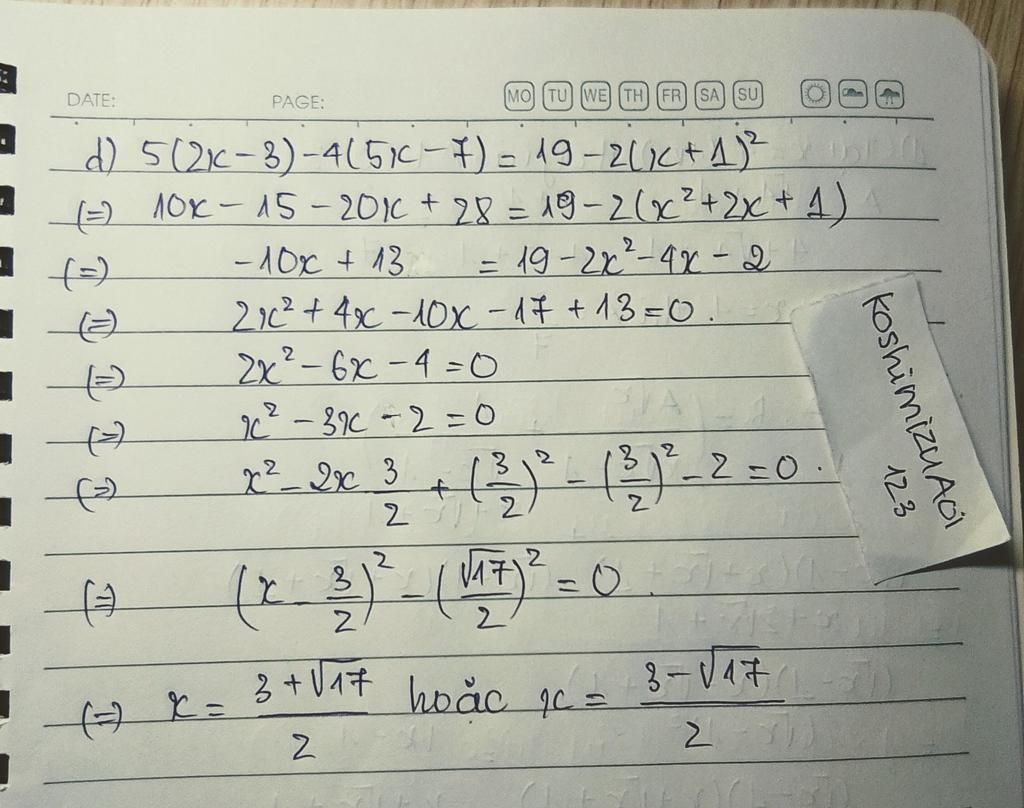 DATE: PAGE: MO TU WE TH FR SA SU
d) 5(2x - 3) - 4(5x - 7) = 19 - 2(x + 1)²
(=) 10x - 15 - 20x + 28 = 19 - 2(x² + 2x + 1)
(=) -10x + 13 = 19 - 2x² - 4x - 2
(=) 2x² + 4x - 10x - 17 + 13 = 0.
(=) 2x² - 6x - 4 = 0
(=) x² - 3x - 2 = 0
(=) x² - 2x 3/2 + (3/2)² - (3/2)² - 2 = 0.
(=) (x - 3/2)² - (√17/2)² = 0.
(=) x = 3 + √17/2 hoặc x = 3 - √17/2
KoshimizuAoi
123